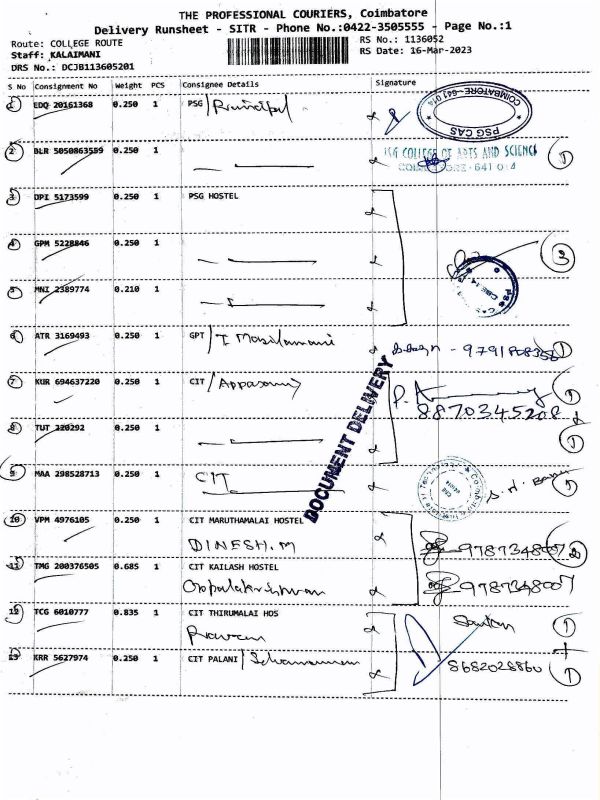 THE PROFESSIONAL COURIERS, Coimbatore
Delivery Runsheet - SITR - Phone No.:0422-3505555 - Page No.:1
Route: COLLEGE ROUTE
RS No.: 1136052
Staff: KALAIMANI
RS Date: 16-Mar-2023
DRS No.: DCJB113605201
S No Consignment No Weight PCS Consignee Details Signature
1 EDQ 20161368 0.250 1 PSG / Principal
COIMBATORE-641 014
PSG CAS
2 BLR 5050863559 0.250 1
PSG COLLEGE OF ARTS AND SCIENCE
COIMBATORE-641 014
1
3 DPI 5173599 0.250 1 PSG HOSTEL
4 GPM 5228846 0.250 1
3
5 MNI 2389774 0.210 1
6 ATR 3169493 0.250 1 GPT / T Masilamani
1
7 KUR 694637220 0.250 1 CIT / Appasamy
8870345208
1
8 TUT 220292 0.250 1
1
DOCUMENT DELIVERY
9 MAA 298528713 0.250 1 CIT
1
10 VPM 4976105 0.250 1 CIT MARUTHAMALAI HOSTEL
DINESH.M
9787348007
2
11 TMG 200376505 0.685 1 CIT KAILASH HOSTEL
Gopalakrishnan
9787348007
12 TCG 6010777 0.835 1 CIT THIRUMALAI HOS
Praveen
1
+
13 KRR 5627974 0.250 1 CIT PALANI /
8682028860
1